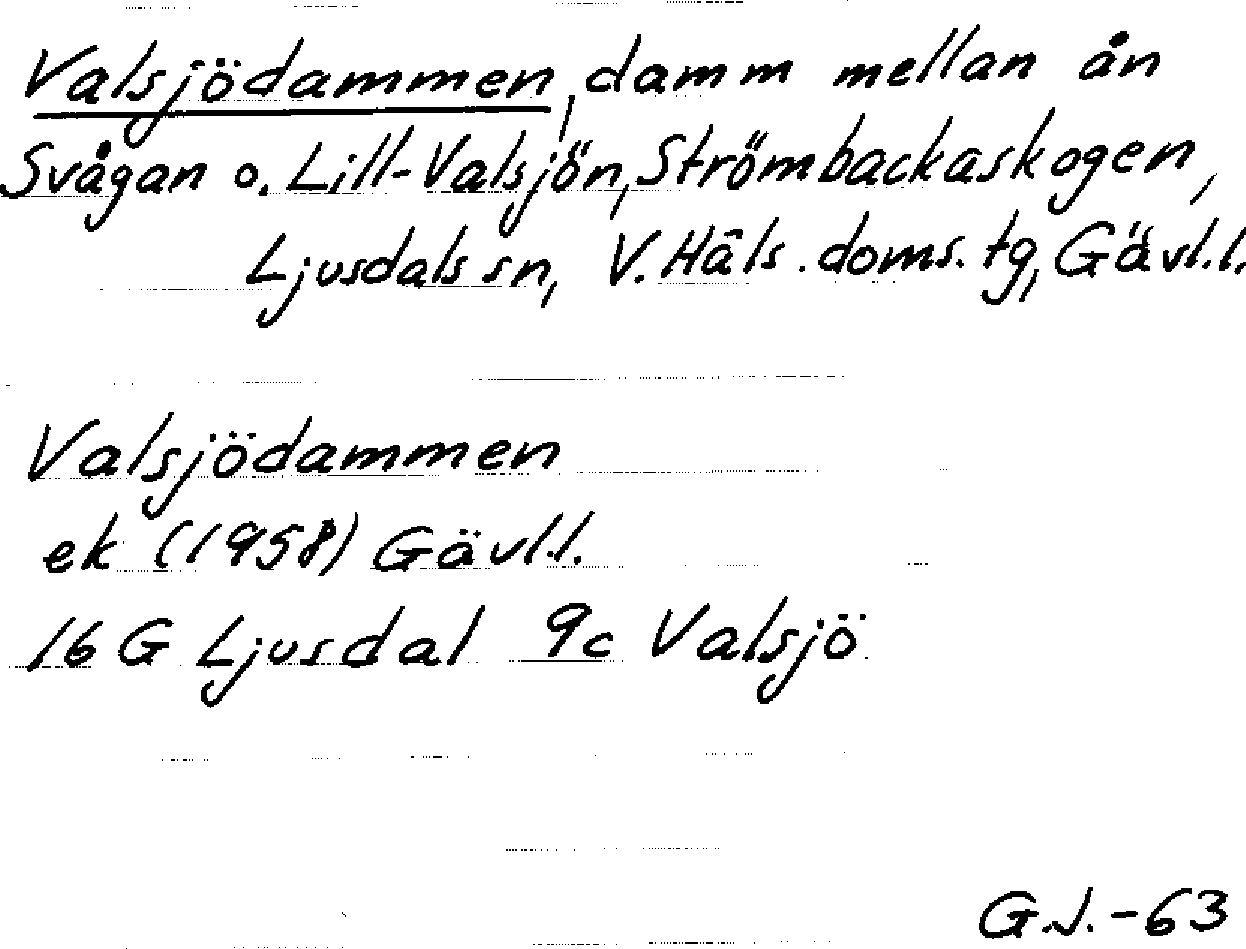 Valsjödammen, damm mellan ån
Svågan o. Lill-Valsjön, Strömbackaskogen,
Ljusdals sn, V. Häls. doms. tg, Gävl.l.
Valsjödammen
ek (1958) Gävl.l.
16 G Ljusdal 9c Valsjö
G.J.-63